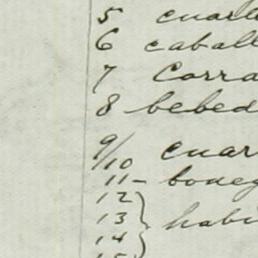 5 cuarto
6 caball
7 Corra
8 bebed
9/10 cuar
11- boneg
12
13 habi
14
15